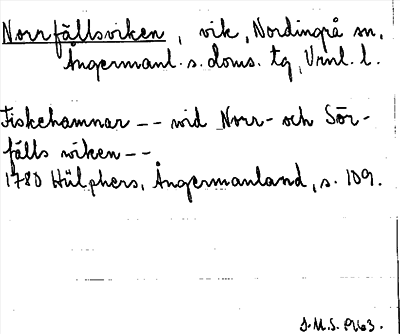 Norrfällsviken, vik, Nordingrå sn,
Ångermanl. s. doms. tg, Vrnl. l.
Fiskehamnar -- wid Norr- och Sör-
fälls wiken --
1780 Hülphers, Ångermanland, s. 109.
S.M.S. 1963.